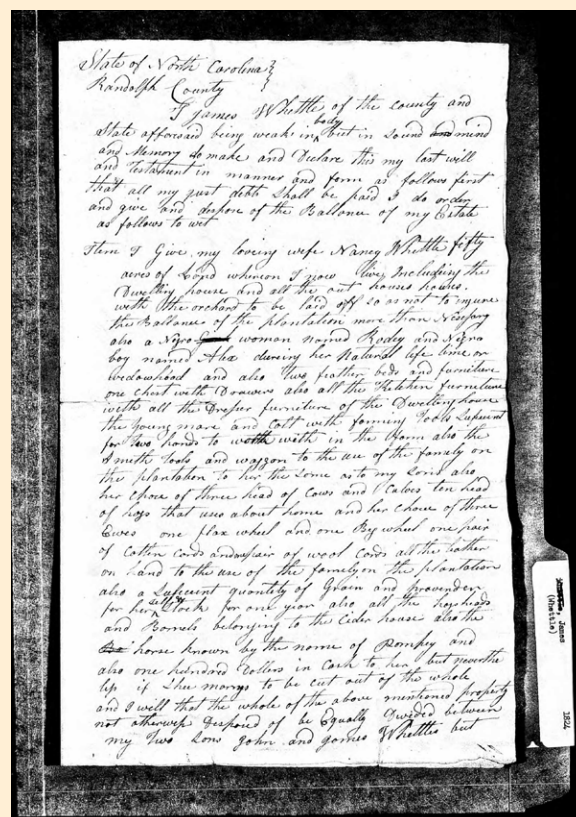 State of North Carolina }
Randolph County }
I James Whettle of the County and
State afforsaid being weak in body but in Sound and mind
and Memory do make and Declare this my last will
and Testament in manner and form as follows first
that all my just debts Shall be paid I do order
and give and despose of the Ballance of my Estate
as follows to wit
Item I Give my loveing wife Nancy Whettle fifty
acres of Land whereon I now live Including the
Dwelling house and all the out houses
with the orchard to be laid off so as not to injure
the Ballance of the plantation more than Nessesary
also a Nigro woman named Rodey and Nigro
boy named Alex dureing her Natural life time or
wedowhood and also two feather beds and furniture
one Chest with Drawers also all the Kitchen furneture
with all the Dresser furneture of the Dwelling house
the young mare and Colt with farming Tools Sufecient
for two hands to work with in the farm also the
Smith Tools and waggon to the use of the family on
the plantation to her the same as to my sons also
her Choice of three head of Cows and Calves ten head
of hogs that uses about home and her Choice of three
Ewes one flax wheel and one Big wheel one pair
of Cotten Cards and one pair of wool Cards all the leather
on hand to the use of the family on the plantation
also a Sufecient quantity of Grain and provender
for her self & Stock for one year also all the hogsheads
and Barrels belonging to the Cider house also the
horse known by the name of Pompey and
also one hundred Dollers in Cash to her but neverthe
less if Shee marrys to be cut out of the whole
and I will that the whole of the above mentioned property
not otherwise Desposd of be Equally Devided between
my two Sons John and James Whettles but
James
(Whettle)
1824